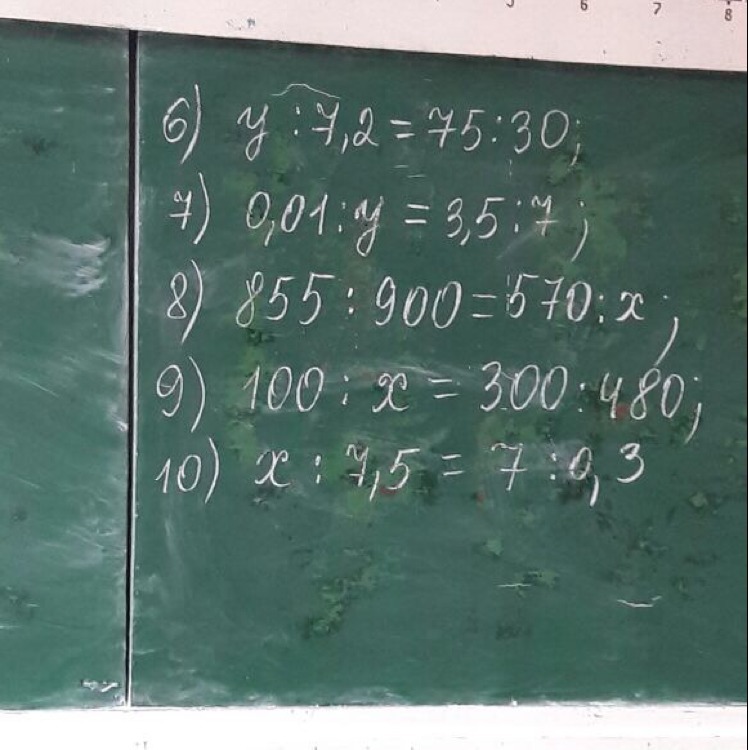 5 6 7 8
6) y : 7,2 = 75 : 30;
7) 0,01 : y = 3,5 : 7;
8) 855 : 900 = 570 : x;
9) 100 : x = 300 : 480;
10) x : 7,5 = 7 : 0,3